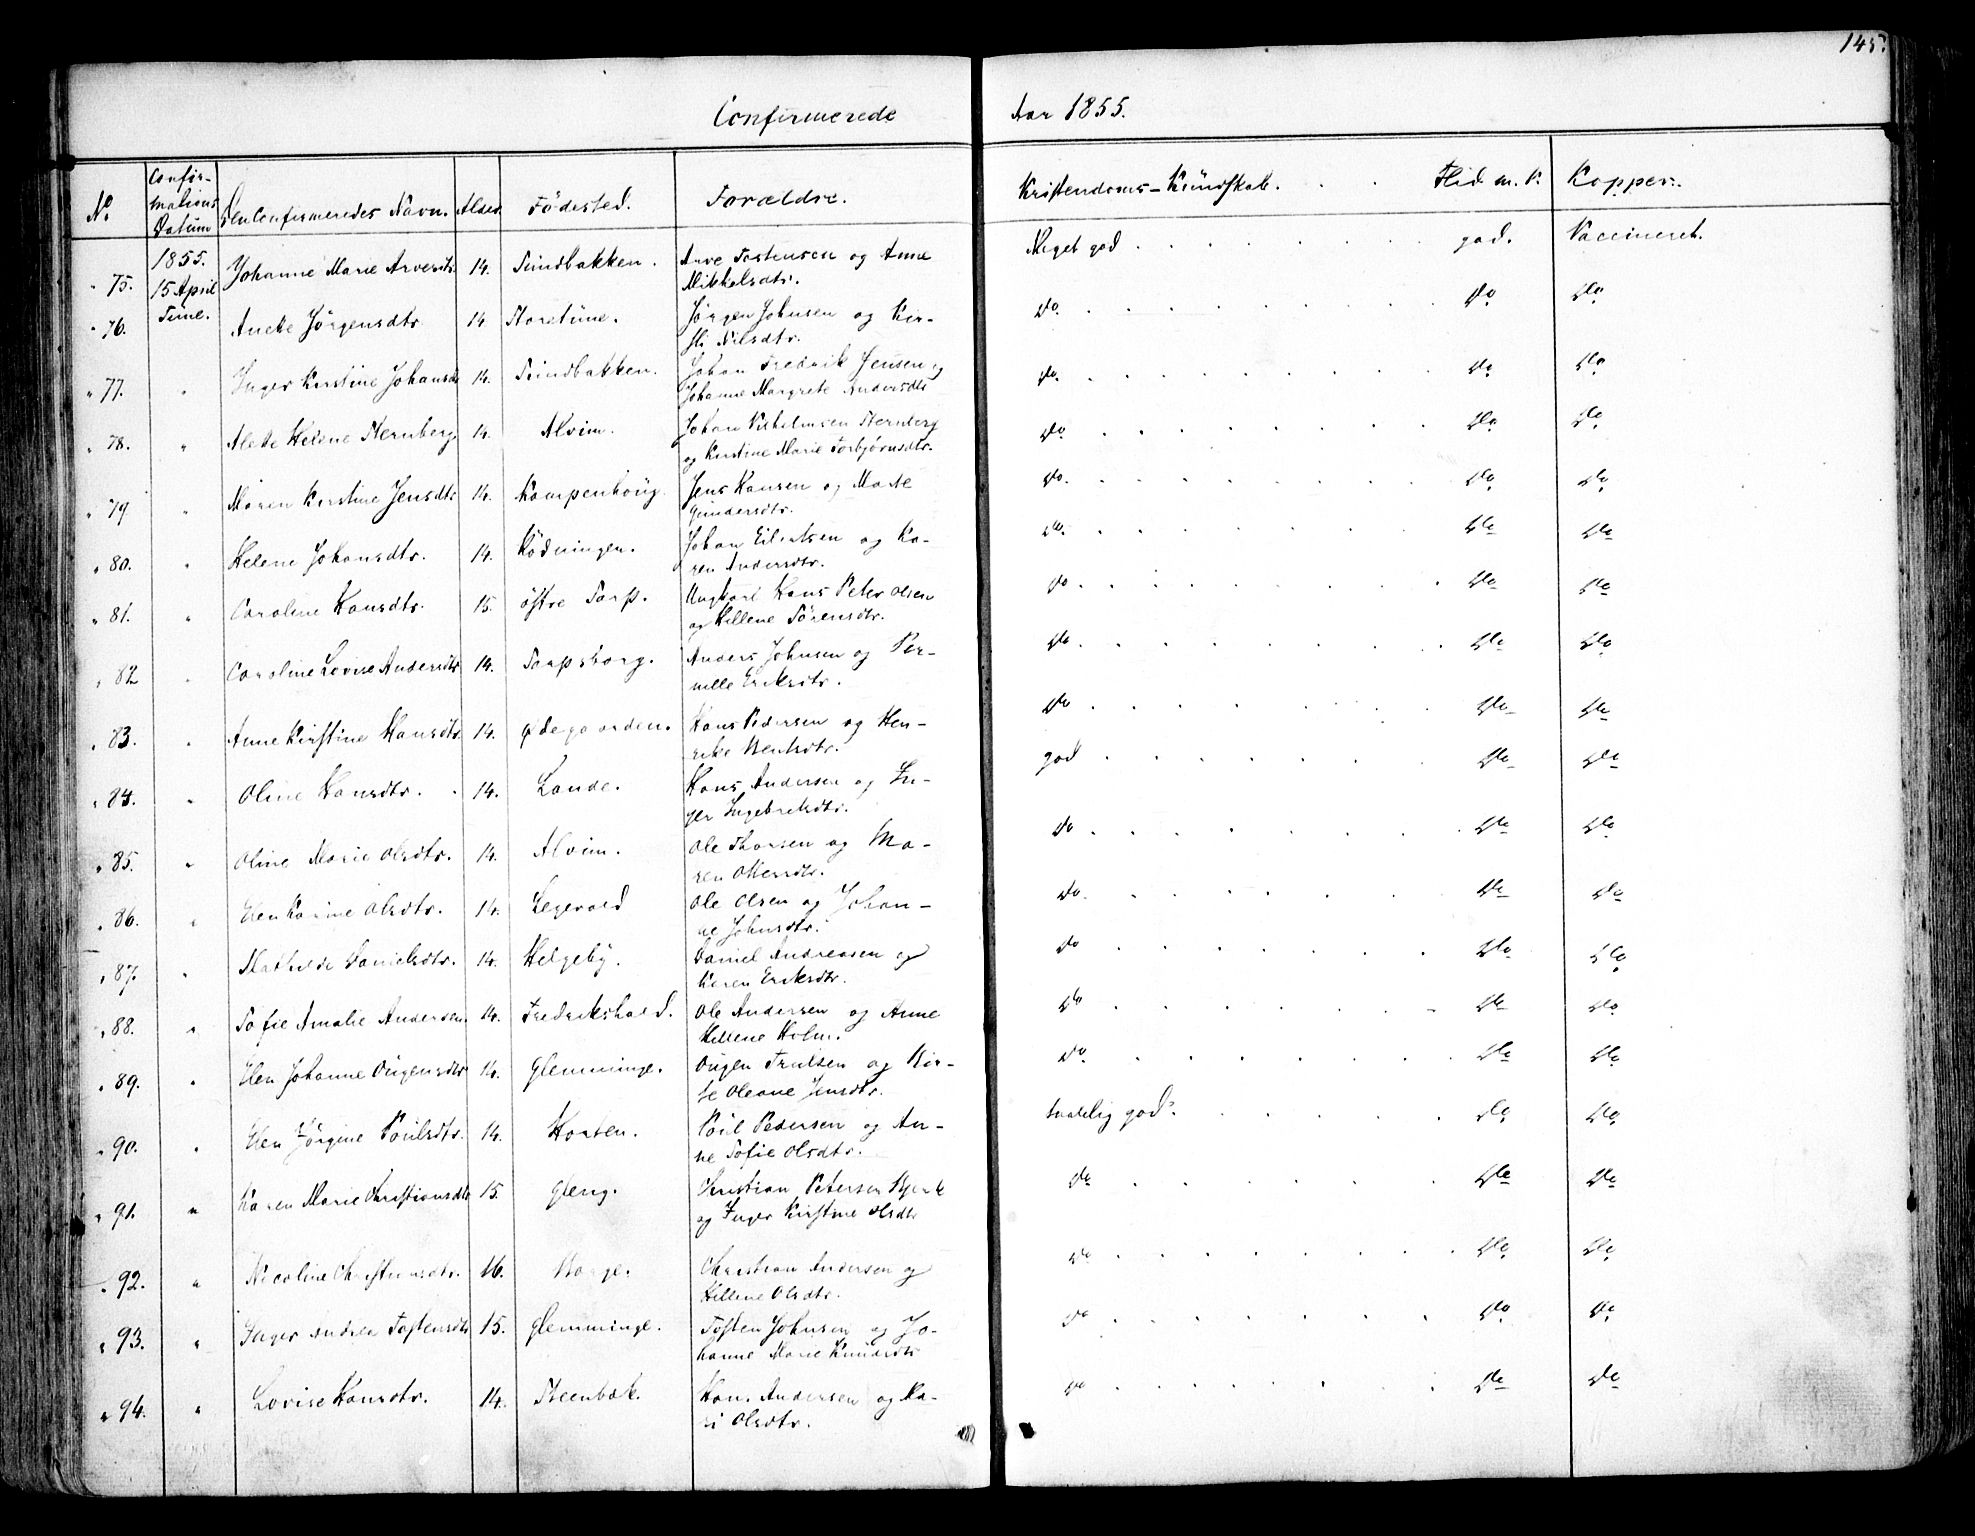 145.
Confirmerede Aar 1855.
No. Confirmations Datum Den Confirmeredes Navn. Alder Födested. Forældre. Kristendoms-Kundskab. Flid m. V. Kopper.
75. 1855. 15 April Tune. Johanne Marie Arvesdtr. 14. Sundbakken. Arve Torstensen og Anne Mikkelsdtr. Meget god god. Vaccineret.
76. Anette Jörgensdtr 14 Storetune. Jörgen Johnsen og Kirsti Nilsdtr. Do. Do Do
77. " Inger Kirstine Johansdtr 14. Sundbakken. Johan Fredrik Jensen og Johanne Margrete Andersdtr Do. Do Do
78. " Alette Helene Sternberg 14. Alvim. Johan Vilhelmsen Sternberg og Kirstine Marie Torbjörnsdtr. Do Do Do
79 " Maren Kirstine Jensdtr 14. Kampenhoug. Jens Hansen og Marte Gundersdtr. Do. Do Do
80. " Helene Johansdtr. 14. Ködningen. Johan Eilertsen og Karen Andersdtr. Do. Do Do
81. " Caroline Hansdtr. 15. östre Torp. Ungkarl Hans Peter Olsen og Hellene Sörensdtr. Do Do Do
82 " Caroline Lovise Andersdtr 14. Torpsborg. Anders Johnsen og Pernille Eriksdtr. Do Do Do
83. " Anne Kirstine Hansdtr. 14. Ødegaarden. Hans Pedersen og Henrike Bentsdtr. Do Do Do
84. " Oline Hansdtr. 14. Lande. Hans Andersen og Inger Ingebretsdtr. god Do Do
85. " Oline Marie Olsdtr. 14. Alvim. Ole Thorsen og Maren Ottersdtr. Do Do Do
86. " Elen Karine Olsdtr. 14. Legevold Ole Olsen og Johanne Johnsdtr. Do. Do Do
87. " Mathilde Danielsdtr. 14. Helgeby. Daniel Andreasen og Karen Eriksdtr. Do Do Do
88. " Sofie Amalie Andersen. 14. Fredrikshald. Ole Andersen og Anne Hellene Holm. Do Do Do
89. " Elen Johanne Ougensdtr 14. Glemminge. Ougen Trulsen og Birte Oleane Jensdtr. Do Do Do
90. " Elen Jörgine Poulsdtr. 14. Horten. Poul Pedersen og Anne Sofie Olsdtr. taalelig god. Do Do
91. " Karen Marie Christiansdtr 15. Gleng. Christian Petersen Bjerk og Inger Kirstine Olsdtr Do Do Do
92. " Nicoline Christiansdtr. 16. Borge. Christian Andersen og Hellene Olsdtr. Do Do Do
93. " Inger Andrea Tostensdtr 15. Glemminge. Tosten Johnsen og Johanne Marie Knudsdtr Do Do Do
94. " Lovise Hansdtr. 14. Steenbæk. Hans Andersen og Kari Olsdtr. Do Do Do